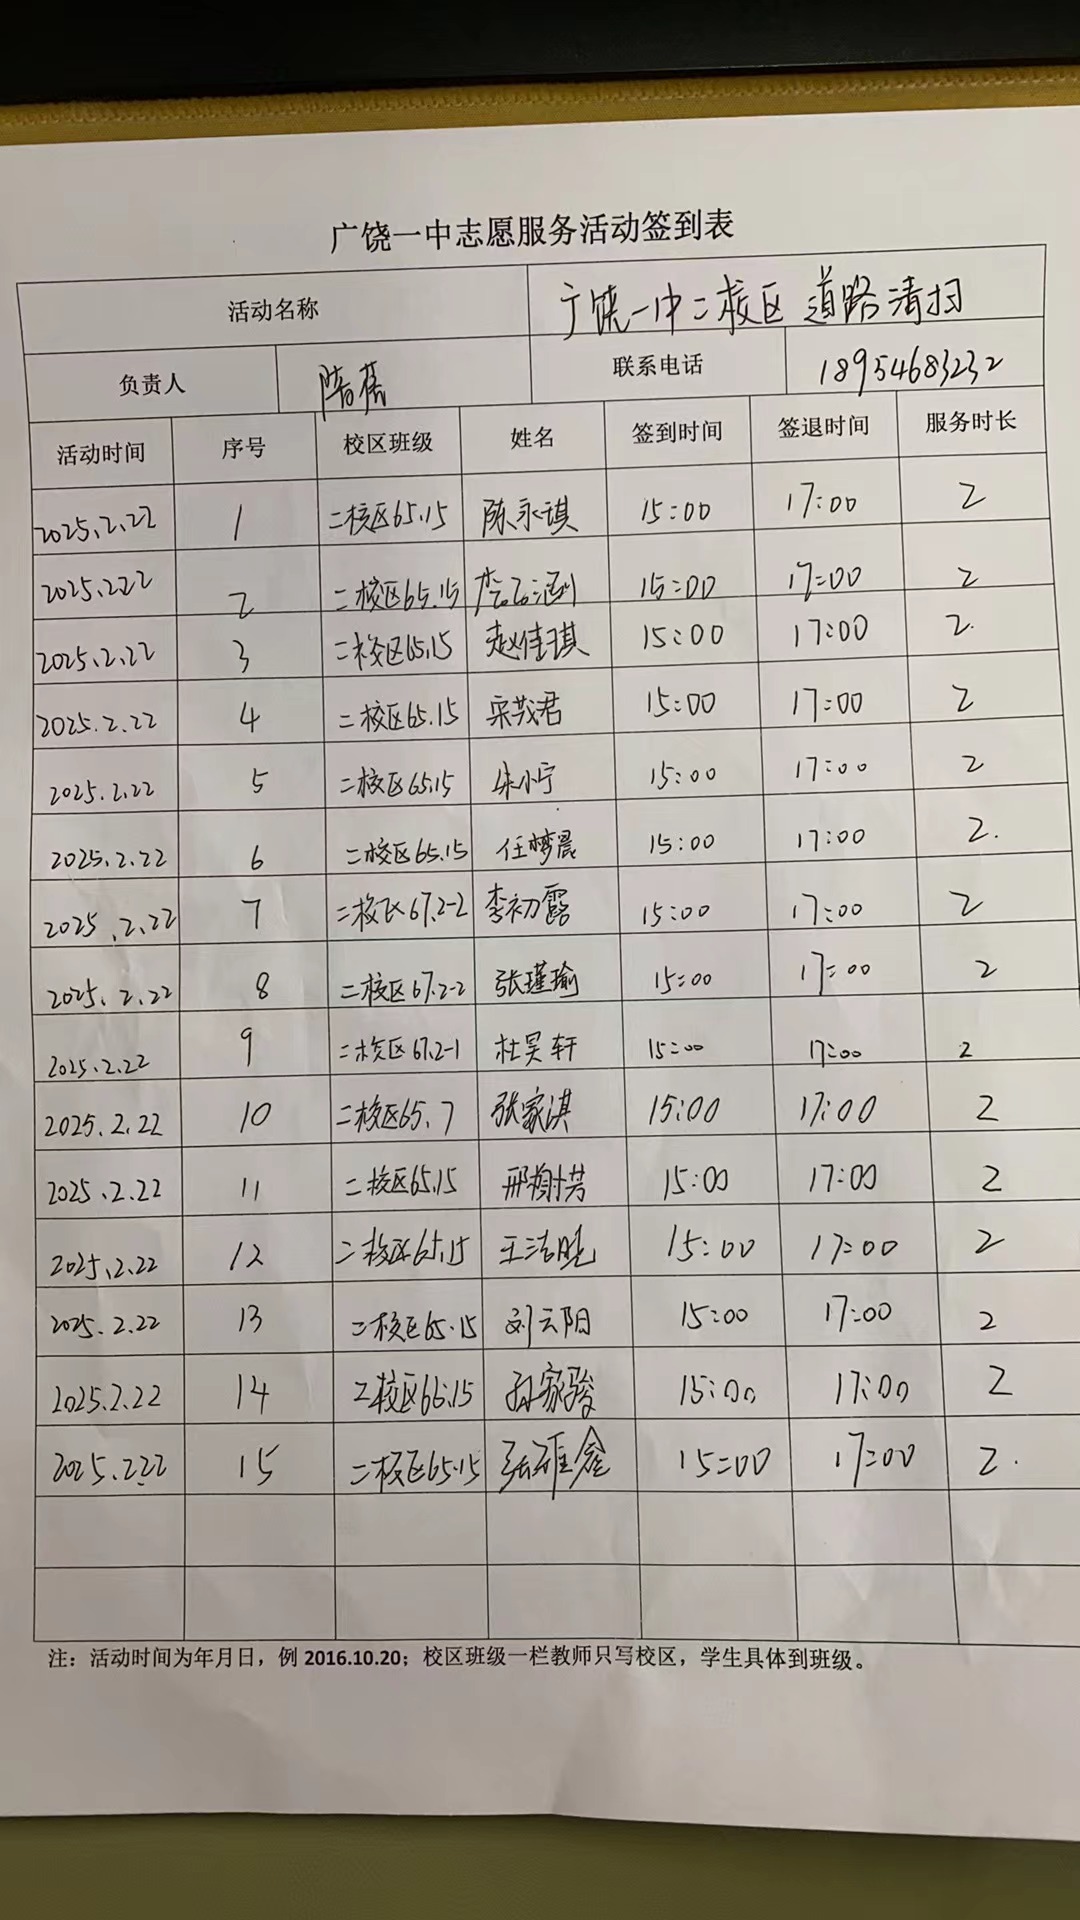 广饶一中志愿服务活动签到表
活动名称 广饶一中二校区 道路清扫
负责人 隋蓓 联系电话 18954683232
活动时间 序号 校区班级 姓名 签到时间 签退时间 服务时长
2025.2.22 1 二校区65.15 陈永琪 15:00 17:00 2
2025.2.22 2 二校区65.15 15:00 17:00 2
2025.2.22 3 二校区65.15 赵佳琪 15:00 17:00 2.
2025.2.22 4 二校区65.15 宋茂君 15:00 17:00 2
2025.2.22 5 二校区65.15 朱小宁 15:00 17:00 2
2025.2.22 6 二校区65.15 任梦晨 15:00 17:00 2.
2025.2.22 7 二校区67.2-2 李初露 15:00 17:00 2
2025.2.22 8 二校区67.2-2 张瑾瑜 15:00 17:00 2
2025.2.22 9 二校区67.2-1 杜昊轩 15:00 17:00 2
2025.2.22 10 二校区65.7 张家淇 15:00 17:00 2
2025.2.22 11 二校区65.15 15:00 17:00 2
2025.2.22 12 二校区65.15 王洁晓 15:00 17:00 2
2025.2.22 13 二校区65.15 刘云阳 15:00 17:00 2
2025.2.22 14 二校区65.15 孙家骏 15:00 17:00 2
2025.2.22 15 二校区65.15 张雅鑫 15:00 17:00 2.
注：活动时间为年月日，例 2016.10.20；校区班级一栏教师只写校区，学生具体到班级。